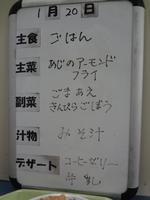 1月20日
主食 ごはん
主菜 あじのアーモンド
フライ
副菜 ごまあえ
きんぴらごぼう
汁物 みそ汁
デザート コーヒーゼリー
牛乳